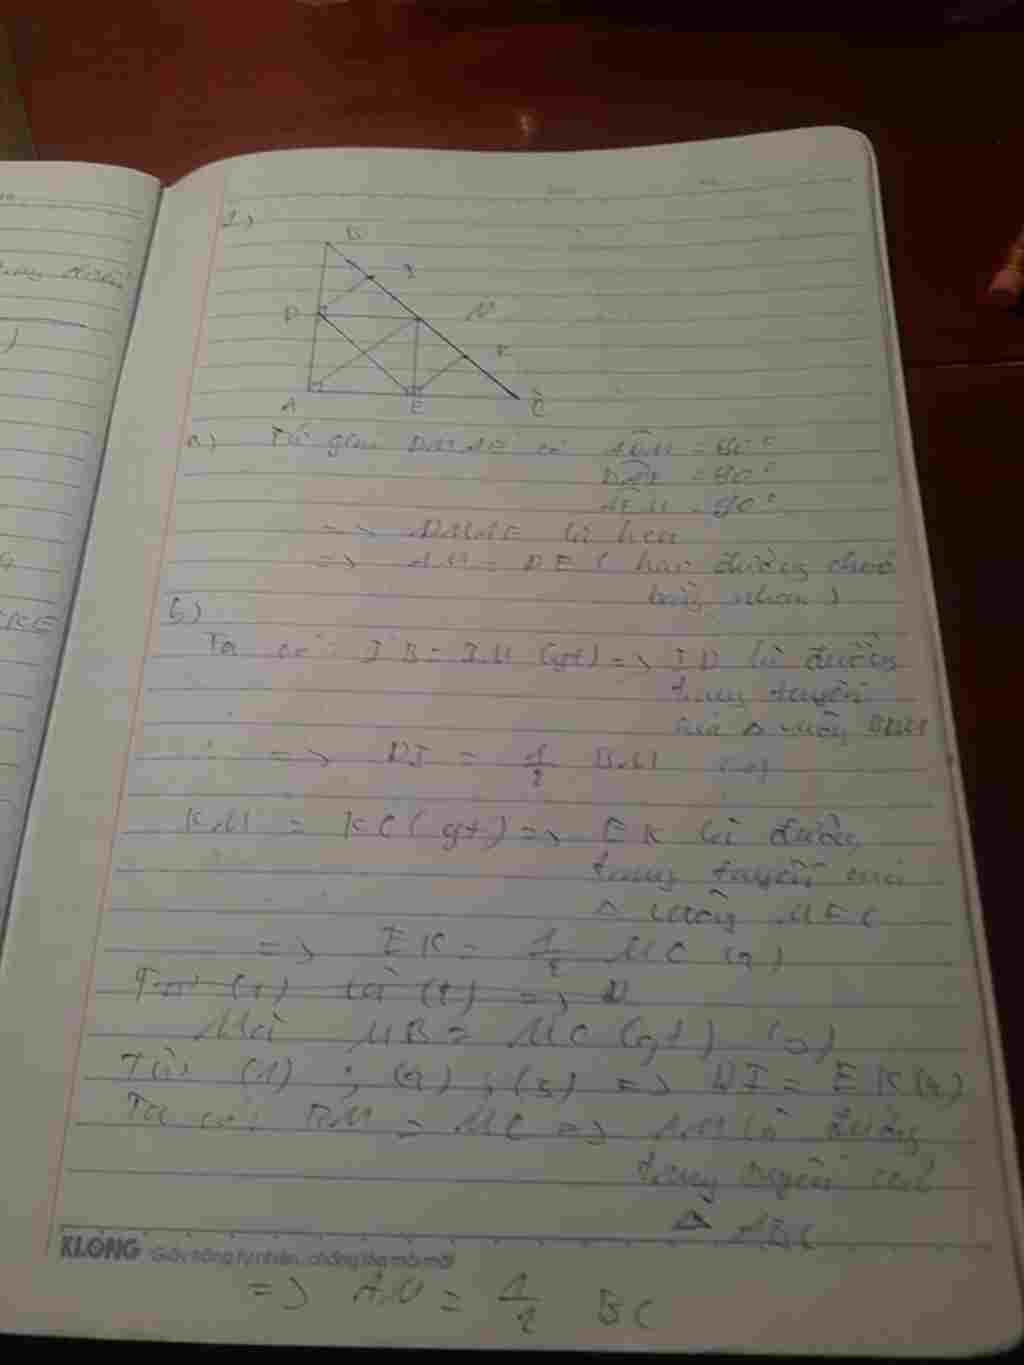 1)
B
I
D
M
K
A
E
C
a) Tứ giác DMAE có ADM = 90°
DAE = 90°
AEM = 90°
=> DMAE là hcn
=> AM = DE ( hai đường chéo
bằng nhau )
b)
Ta có: IB = IM (gt) => ID là đường
trung tuyến
của Δ vuông BDM
=> DI = 1/2 BM (1)
KM = KC (gt) => EK là đường
trung tuyến của
Δ vuông MEC
=> EK = 1/2 MC (2)
Mà MB = MC (gt) (3)
Từ (1) ; (2) ; (3) => DI = EK (4)
Ta có: BM = MC => AM là đường
trung tuyến của
Δ ABC
KLONG Giấy trắng tự nhiên, chống lóa mỏi mắt
=> AM = 1/2 BC